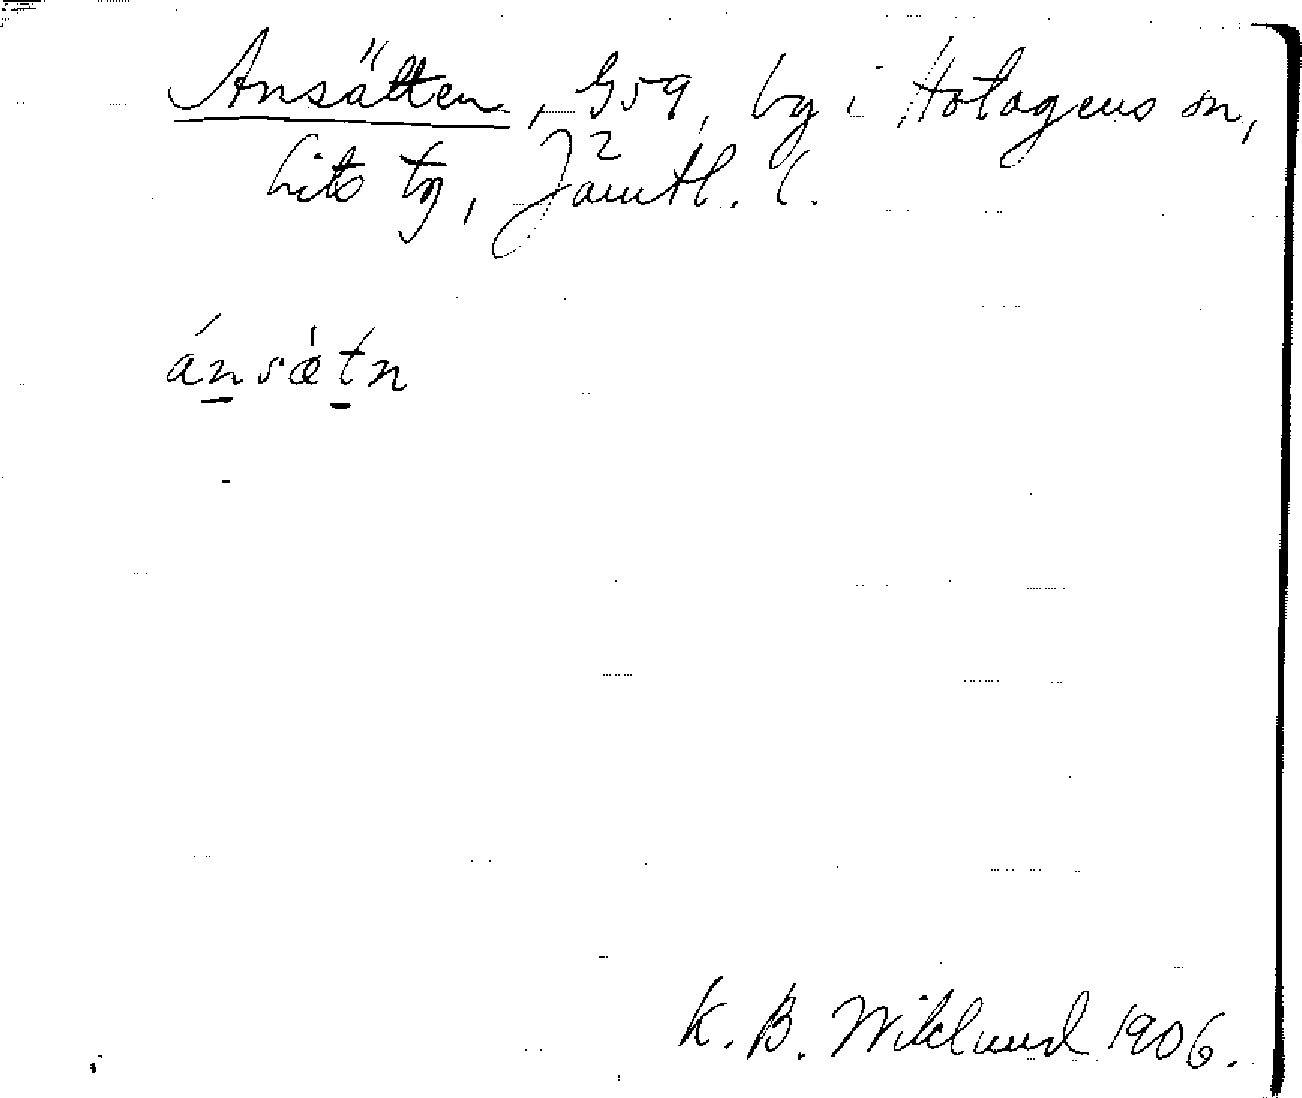 Ansätten, G59, by i Hotagens sn,
Lits tg, Jämtl. l.
ánsætn
K. B. Wiklund 1906.